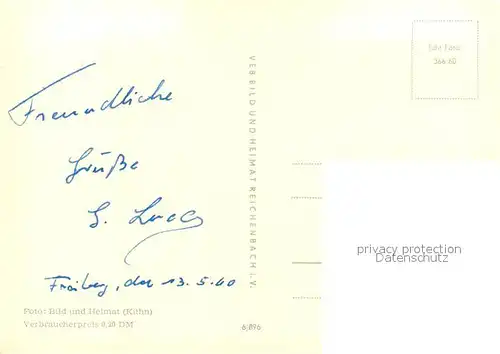 Freundliche
Grüße
Freiberg, den 13.5.60
Foto: Bild und Heimat (Kühn)
Verbraucherpreis 0,20 DM
VEB BILD UND HEIMAT REICHENBACH I. V.
6/896
privacy protection
Datenschutz